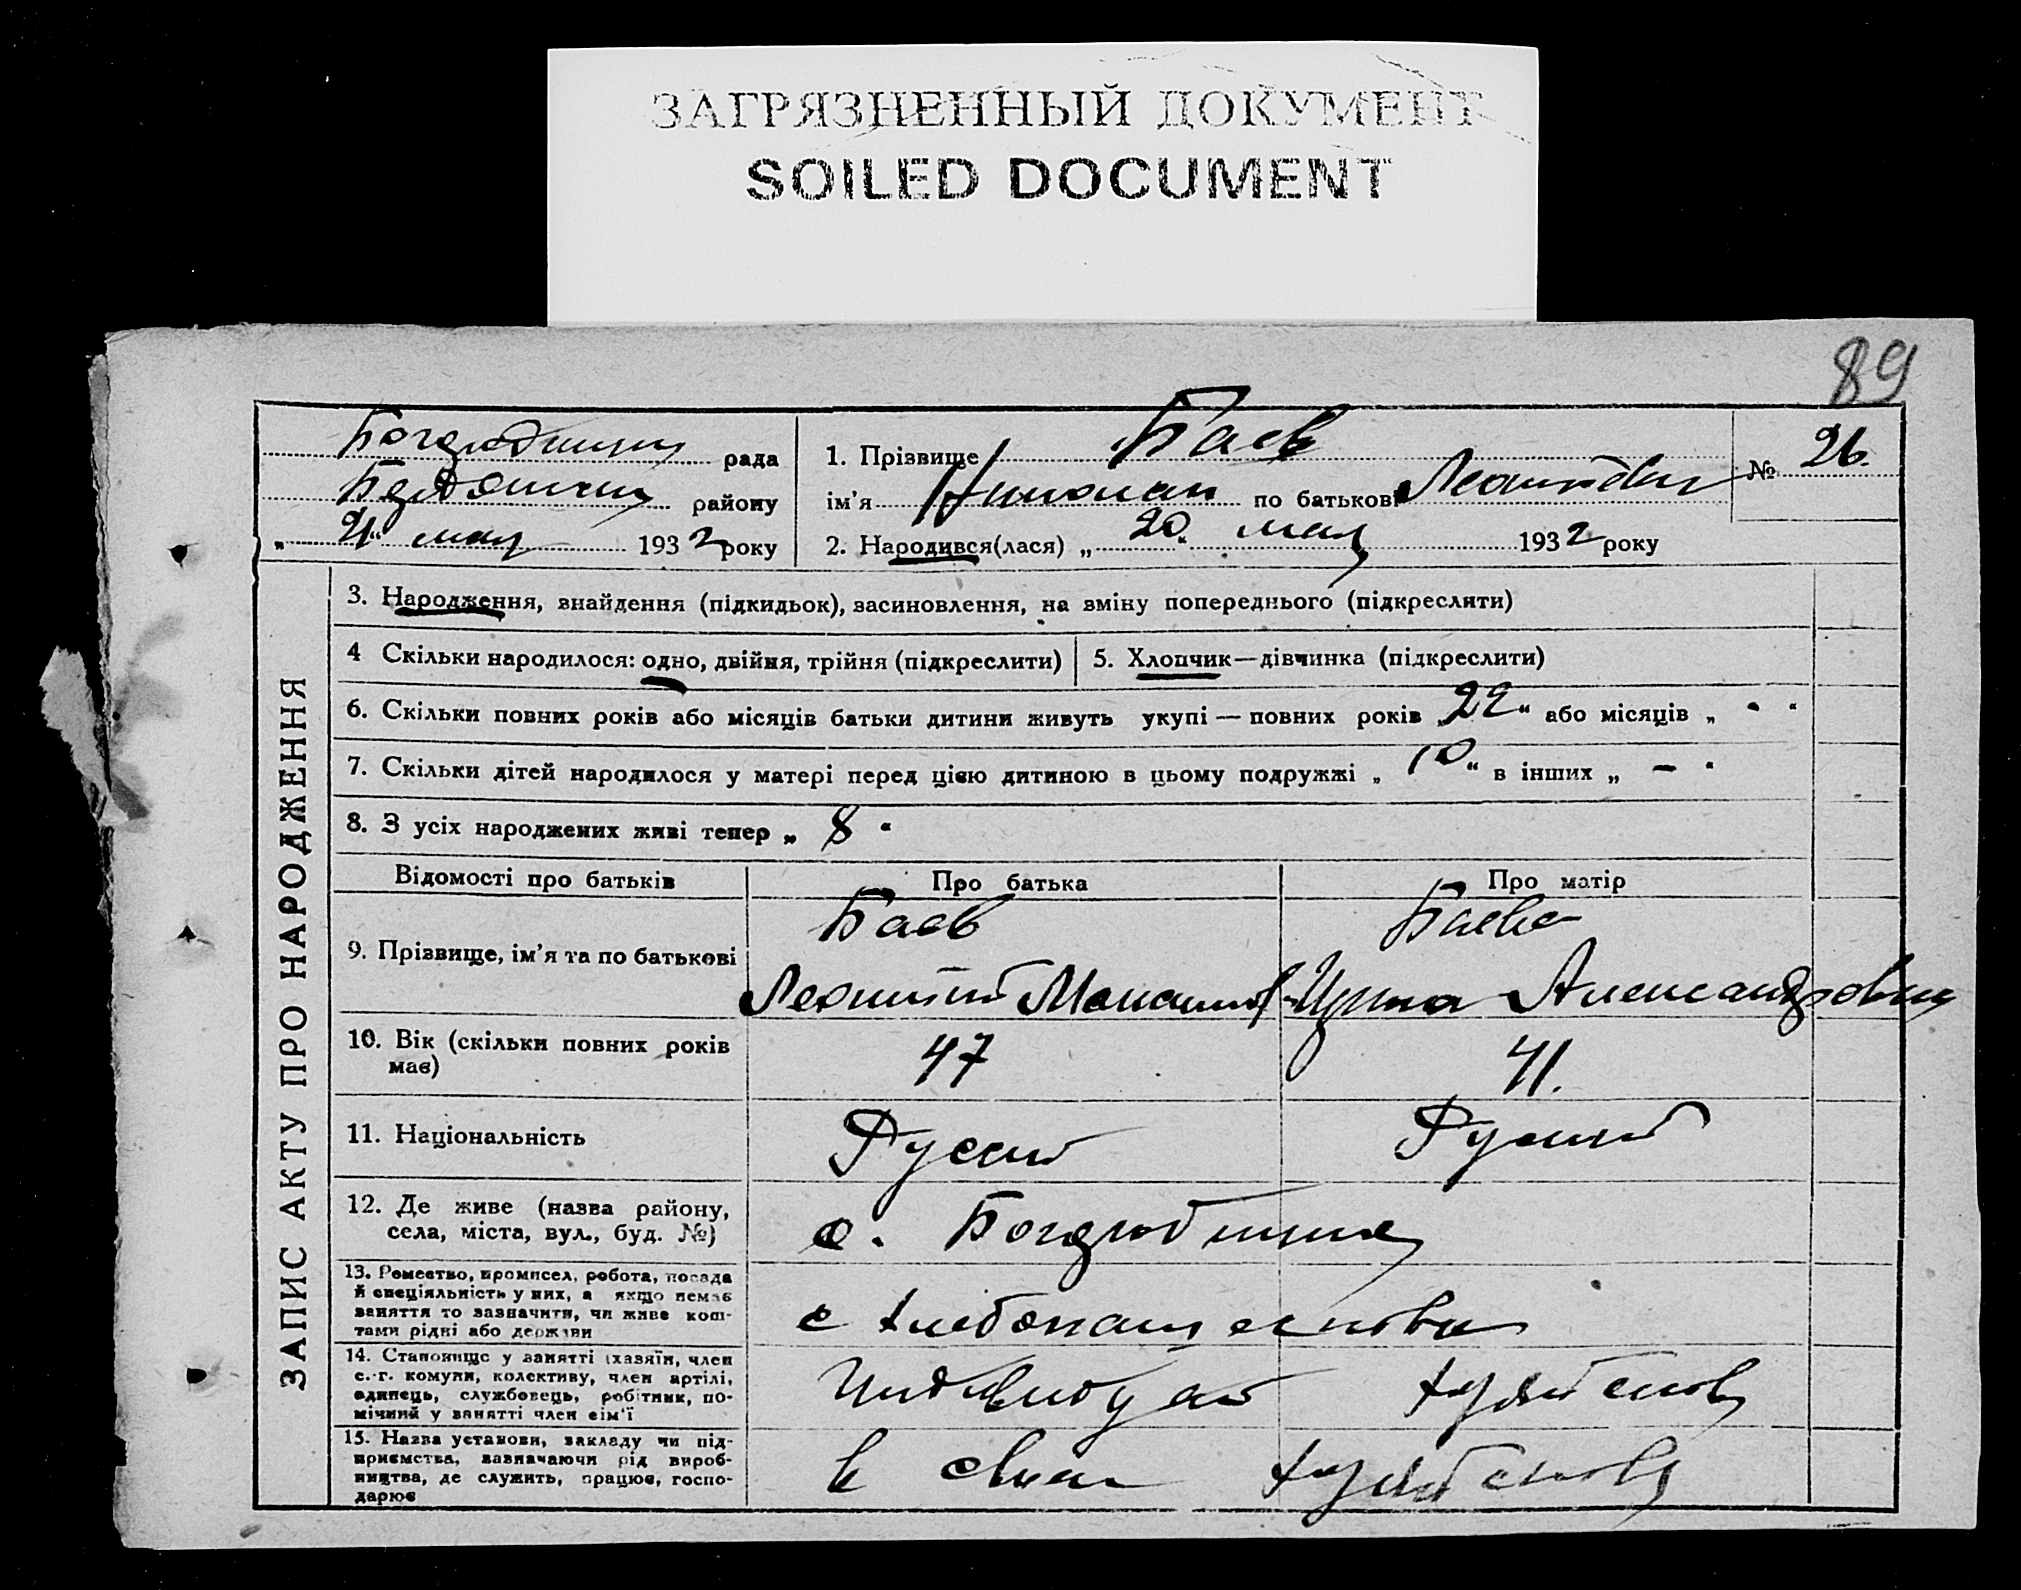 ЗАГРЯЗНЕННЫЙ ДОКУМЕНТ
SOILED DOCUMENT
89
рада
району
„ 21 “ мая 1932 року
1. Прізвище Баев
ім’я Николай по батькові Леонтович
2. Народився(лася) „ 20 “ мая 1932 року
№ 26.
ЗАПИС АКТУ ПРО НАРОДЖЕННЯ
3. Народження, знайдення (підкидьок), засиновлення, на зміну попереднього (підкреслити)
4 Скільки народилося: одно, двійня, трійня (підкреслити)
5. Хлопчик—дівчинка (підкреслити)
6. Скільки повних років або місяців батьки дитини живуть укупі — повних років „ 22 “ або місяців „ “
7. Скільки дітей народилося у матері перед цією дитиною в цьому подружжі „ 10 “ в інших „ — “
8. З усіх народжених живі тепер „ 8 “
Відомості про батьків
Про батька
Про матір
9. Прізвище, ім’я та по батькові
Баев
Леонтий
Баева
Ирина Александровна
10. Вік (скільки повних років
має)
47
41.
11. Національність
Руский
Руский
12. Де живе (назва району,
села, міста, вул., буд. №)
с.
13. Ремество, промисел, робота, посада
й спеціяльність у них, а якщо немає
заняття то зазначити, чи живе кош-
тами рідні або держави
с хлебопашества
14. Становище у занятті (хазяїн, член
с.-г. комуни, колективу, член артілі,
одинець, службовець, робітник, по-
мічний у занятті член сім’ї
15. Назва установи, закладу чи під-
приємства, зазначаючи рід вироб-
ництва, де служить, працює, госпо-
дарює
в своем